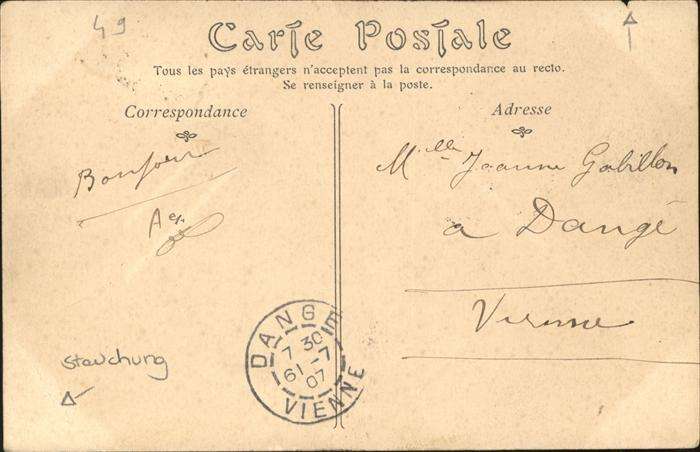 49
Carte Postale
Tous les pays étrangers n'acceptent pas la correspondance au recto.
Se renseigner à la poste.
Correspondance
Adresse
Bonjour
Melle Jeanne Gabillon
a Dangé
Vienne
DANGE
7 30
61 -7
07
VIENNE
Stauchung